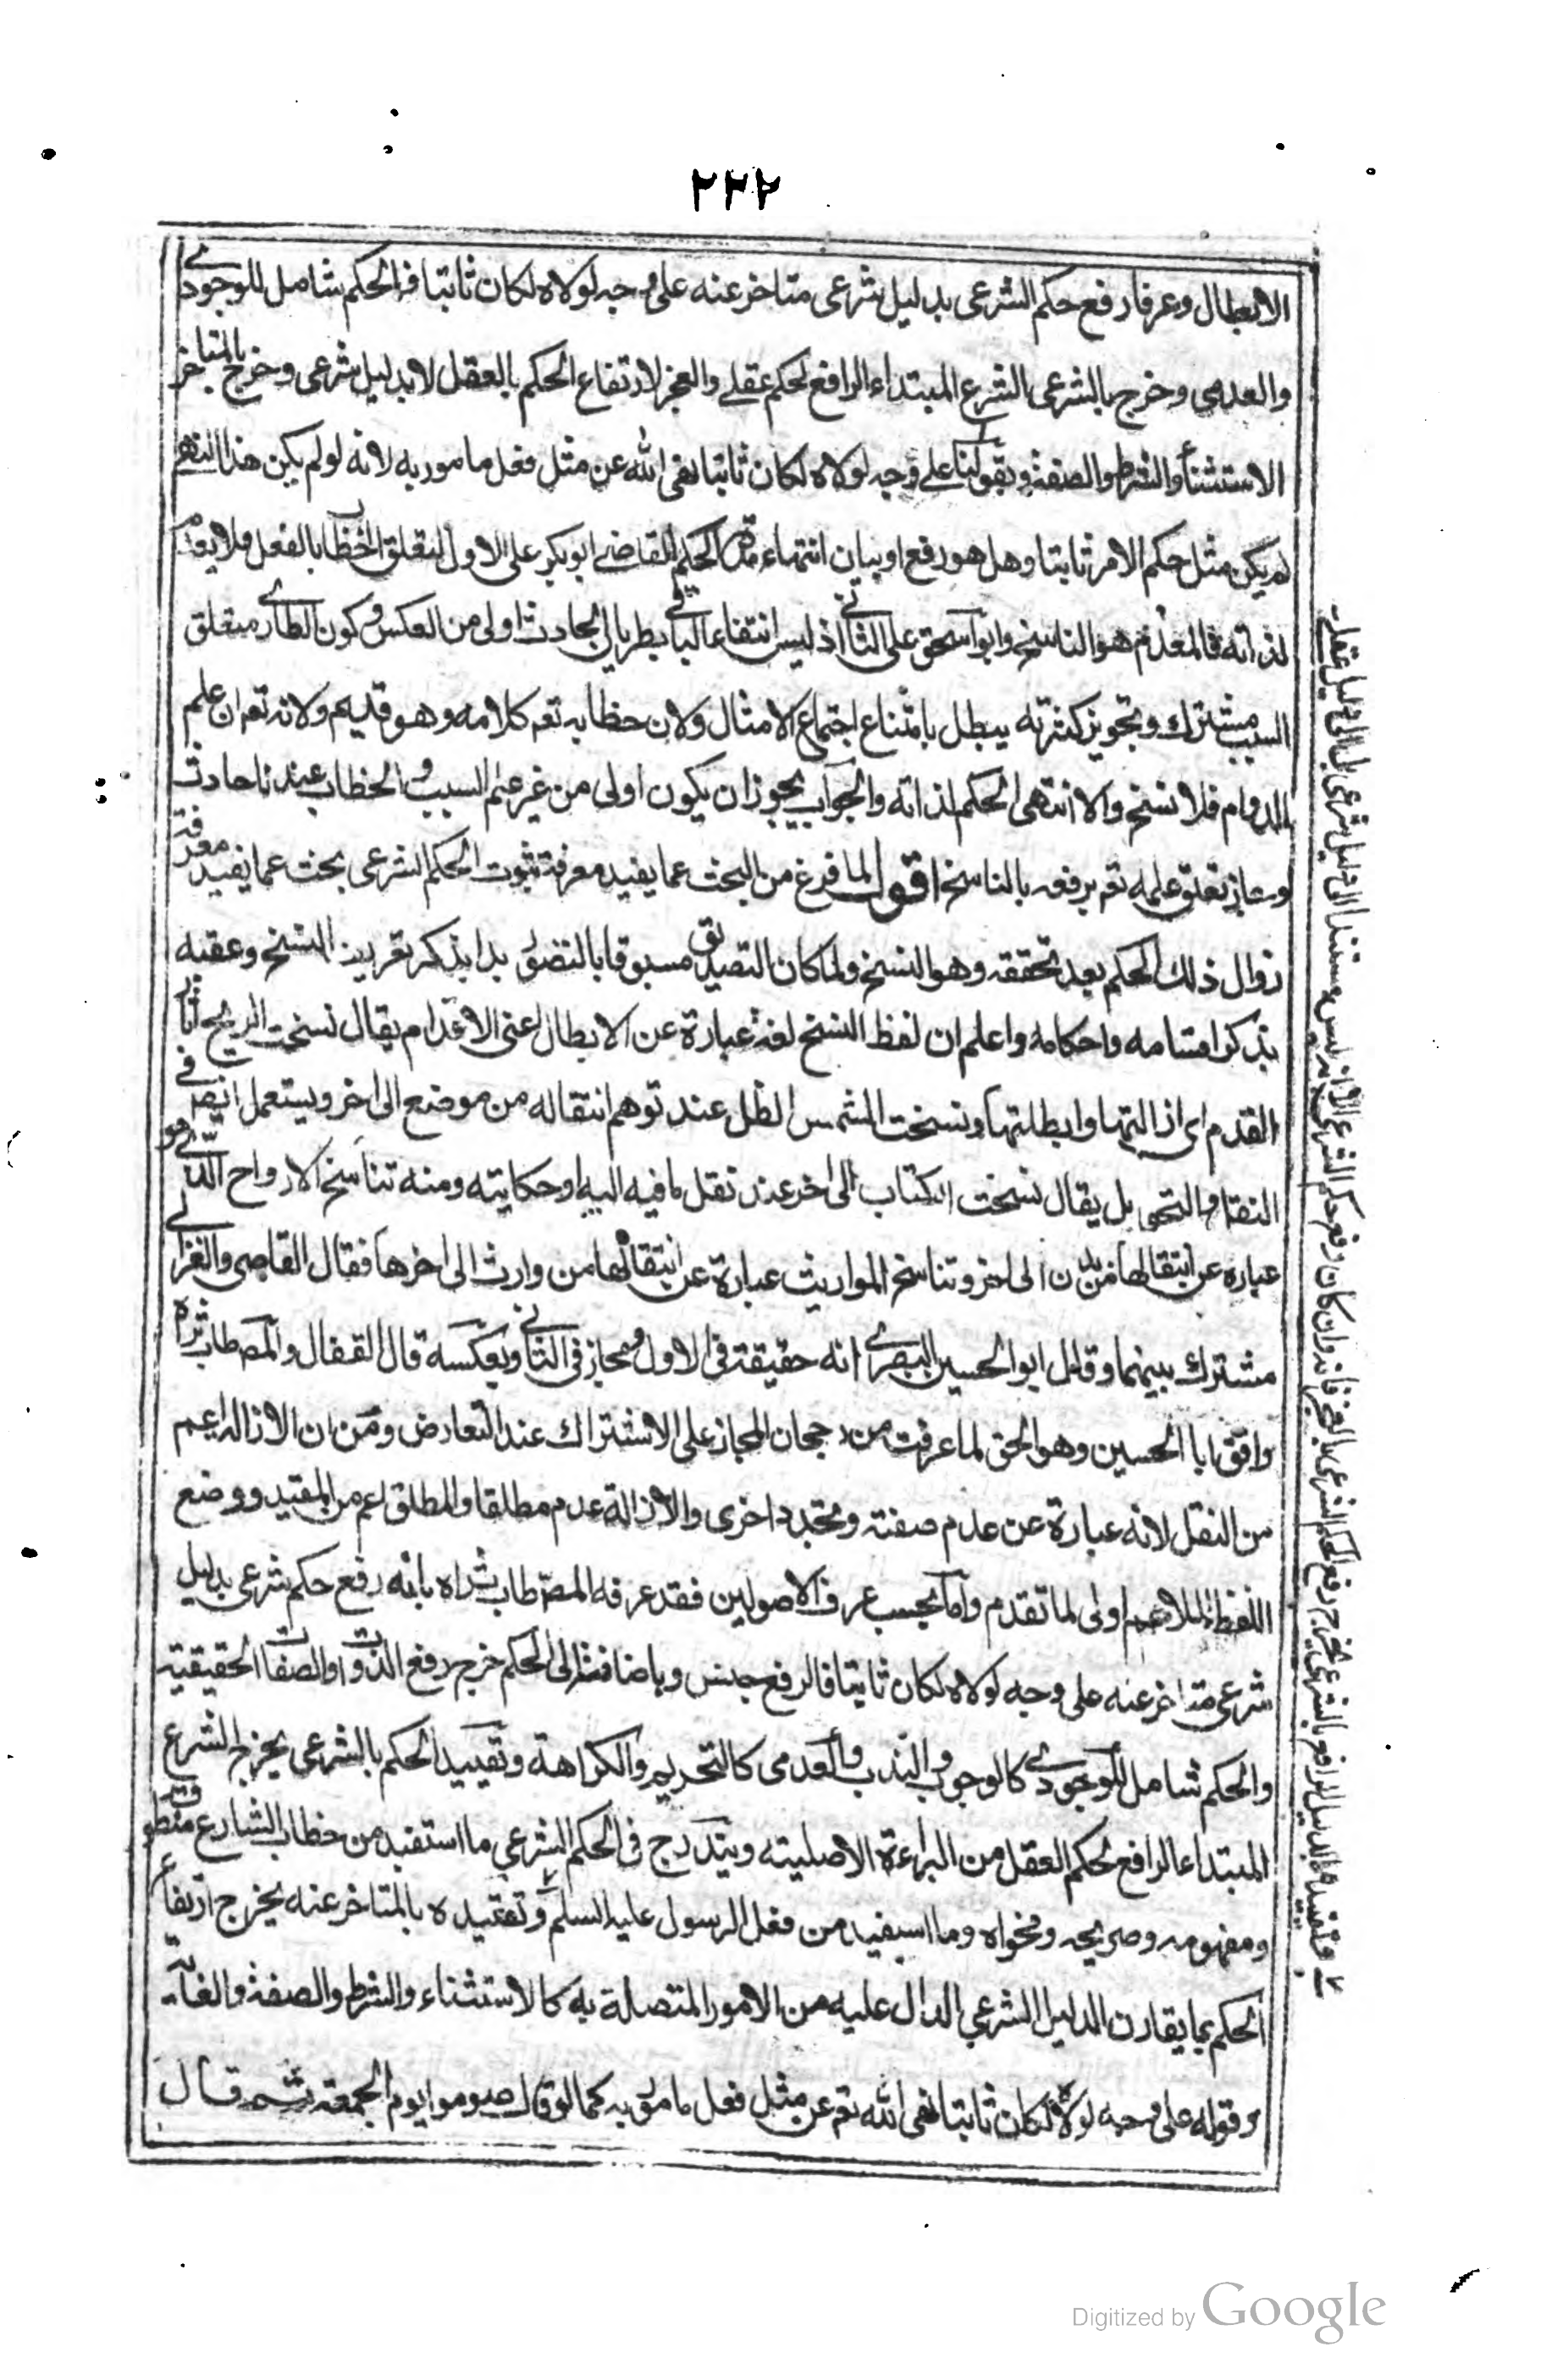 ٢٢٢
الابطال وعرفا رفع حكم الشرعى بدليل شرعى متاخر عنه على وجه لولاه لكان ثابتا فالحكم شامل للوجودى
والعدمى وخرج بالشرعى الشرع المبتداء الرافع لحكم عقلے والعجز لارتفاع الحكم بالعقل لا بدليل شرعى وخرج بالمتاخر
الاستثناء والشرط والصفة وبقولنا على وجه لولاه لكان ثابتا نهى الله عن مثل فعل مامور به لانه لو لم يكن هذا النهى
لم يكن مثل حكم الامر ثابتا وهل هو رفع او بيان انتهاء مدة الحكم القاضى ابو بكر على الاول لتعلق الخطاب بالفعل فلا يعدم
لذاته فالمعدم هو الناسخ وابو اسحق على الثانى اذ ليس انتفاء الباقى بطريان الحادث اولى من العكس وكون الطارى متعلق
السبب مشترك وتجويز كثرته يبطل بامتناع اجتماع الامثال ولان خطابه تعم كلامه وهو قديم ولانه تعم ان علم
الدوام فلا نسخ والا انتهى الحكم لذاته والجواب يجوز ان يكون اولى من غير علم السبب والخطاب عندنا حادث
وجاز تعلق علمه تعم برفعه بالناسخ اقول لما فرغ من البحث عما يفيد معرفة ثبوت الحكم الشرعى بحث عما يفيد معرفة
زوال ذلك الحكم بعد تحققه وهو النسخ ولما كان التصديق مسبوقا بالتصور بدا بذكر تعريف النسخ وعقبه
بذكر اقسامه واحكامه واعلم ان لفظ النسخ لغة عبارة عن الابطال اعنى الاعدام يقال نسخت الريح آثار
القدم اى ازالتها وابطلتها ونسخت الشمس الظل عند توهم انتقاله من موضع الى اخر ويستعمل ايضا فى
النقل والتحويل يقال نسخت الكتاب الى اخر عند نقل ما فيه اليه او حكايته ومنه تناسخ الارواح الذى هو
عبارة عن انتقالها من بدن الى اخر وتناسخ المواريث عبارة عن انتقالها من وارث الى اخرها فقال القاضى والغزالى
مشترك بينهما وقال ابو الحسين البصرى انه حقيقة فى الاول ومجاز فى الثانى وبعكسه قال القفال والمصّ طاب ثراه
وافق ابا الحسين وهو الحق لما عرفت من رجحان المجاز على الاشتراك عند التعارض ومن ان الازالة اعم
من النقل لانه عبارة عن عدم صفته وتجدد اخرى والازالة عدم مطلقا والمطلق اعم من المقيد ووضع
اللفظ للاعم اولى لما تقدم واما بحسب عرف الاصولين فقد عرفه المصّ طاب ثراه بانه رفع حكم شرعى بدليل
شرعى متاخر عنه على وجه لولاه لكان ثابتا فالرفع جنس وباضافته الى الحكم خرج رفع الذوات والصفات الحقيقية
والحكم شامل للوجودى كالوجوب والندب والعدمى كالتحريم والكراهة وتقييد الحكم بالشرعى يخرج الشرع
المبتداء الرافع لحكم العقل من البراءة الاصلية ويندرج فى الحكم الشرعى ما استفيد من خطاب الشارع منطوقه
ومفهومه وصريحه وفحواه وما استفيد من فعل الرسول عليه السلم وتقييده بالمتاخر عنه يخرج ارتفاع
الحكم بما يقارن الدليل الشرعي الدال عليه من الامور المتصلة به كالاستثناء والشرط والصفة والغاية
وقوله على وجه لولاه لكان ثابتا نهى الله تعم عن مثل فعل مامور به كما لو قال صوموا يوم الجمعة ثم قال
وتقييده الدليل الرافع بالشرعى يخرج رفع الحكم الشرعى بالعجز فانه وان كان رفع حكم الشرعى الا انه ليس مستندا الى دليل شرعى بل الى دليل عقلے
Digitized by Google